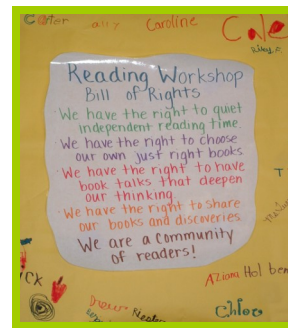 Carter
ally
Caroline
Cale
Riley P.
Reading Workshop
Bill of Rights
· We have the right to quiet
independent reading time.
We have the right to choose
our own just right books.
· We have the right to have
book talks that deepen
our thinking.
· We have the right to share
our books and discoveries
We are a community
of readers!
T
CK
Aziana Holben
Drew
Chloe